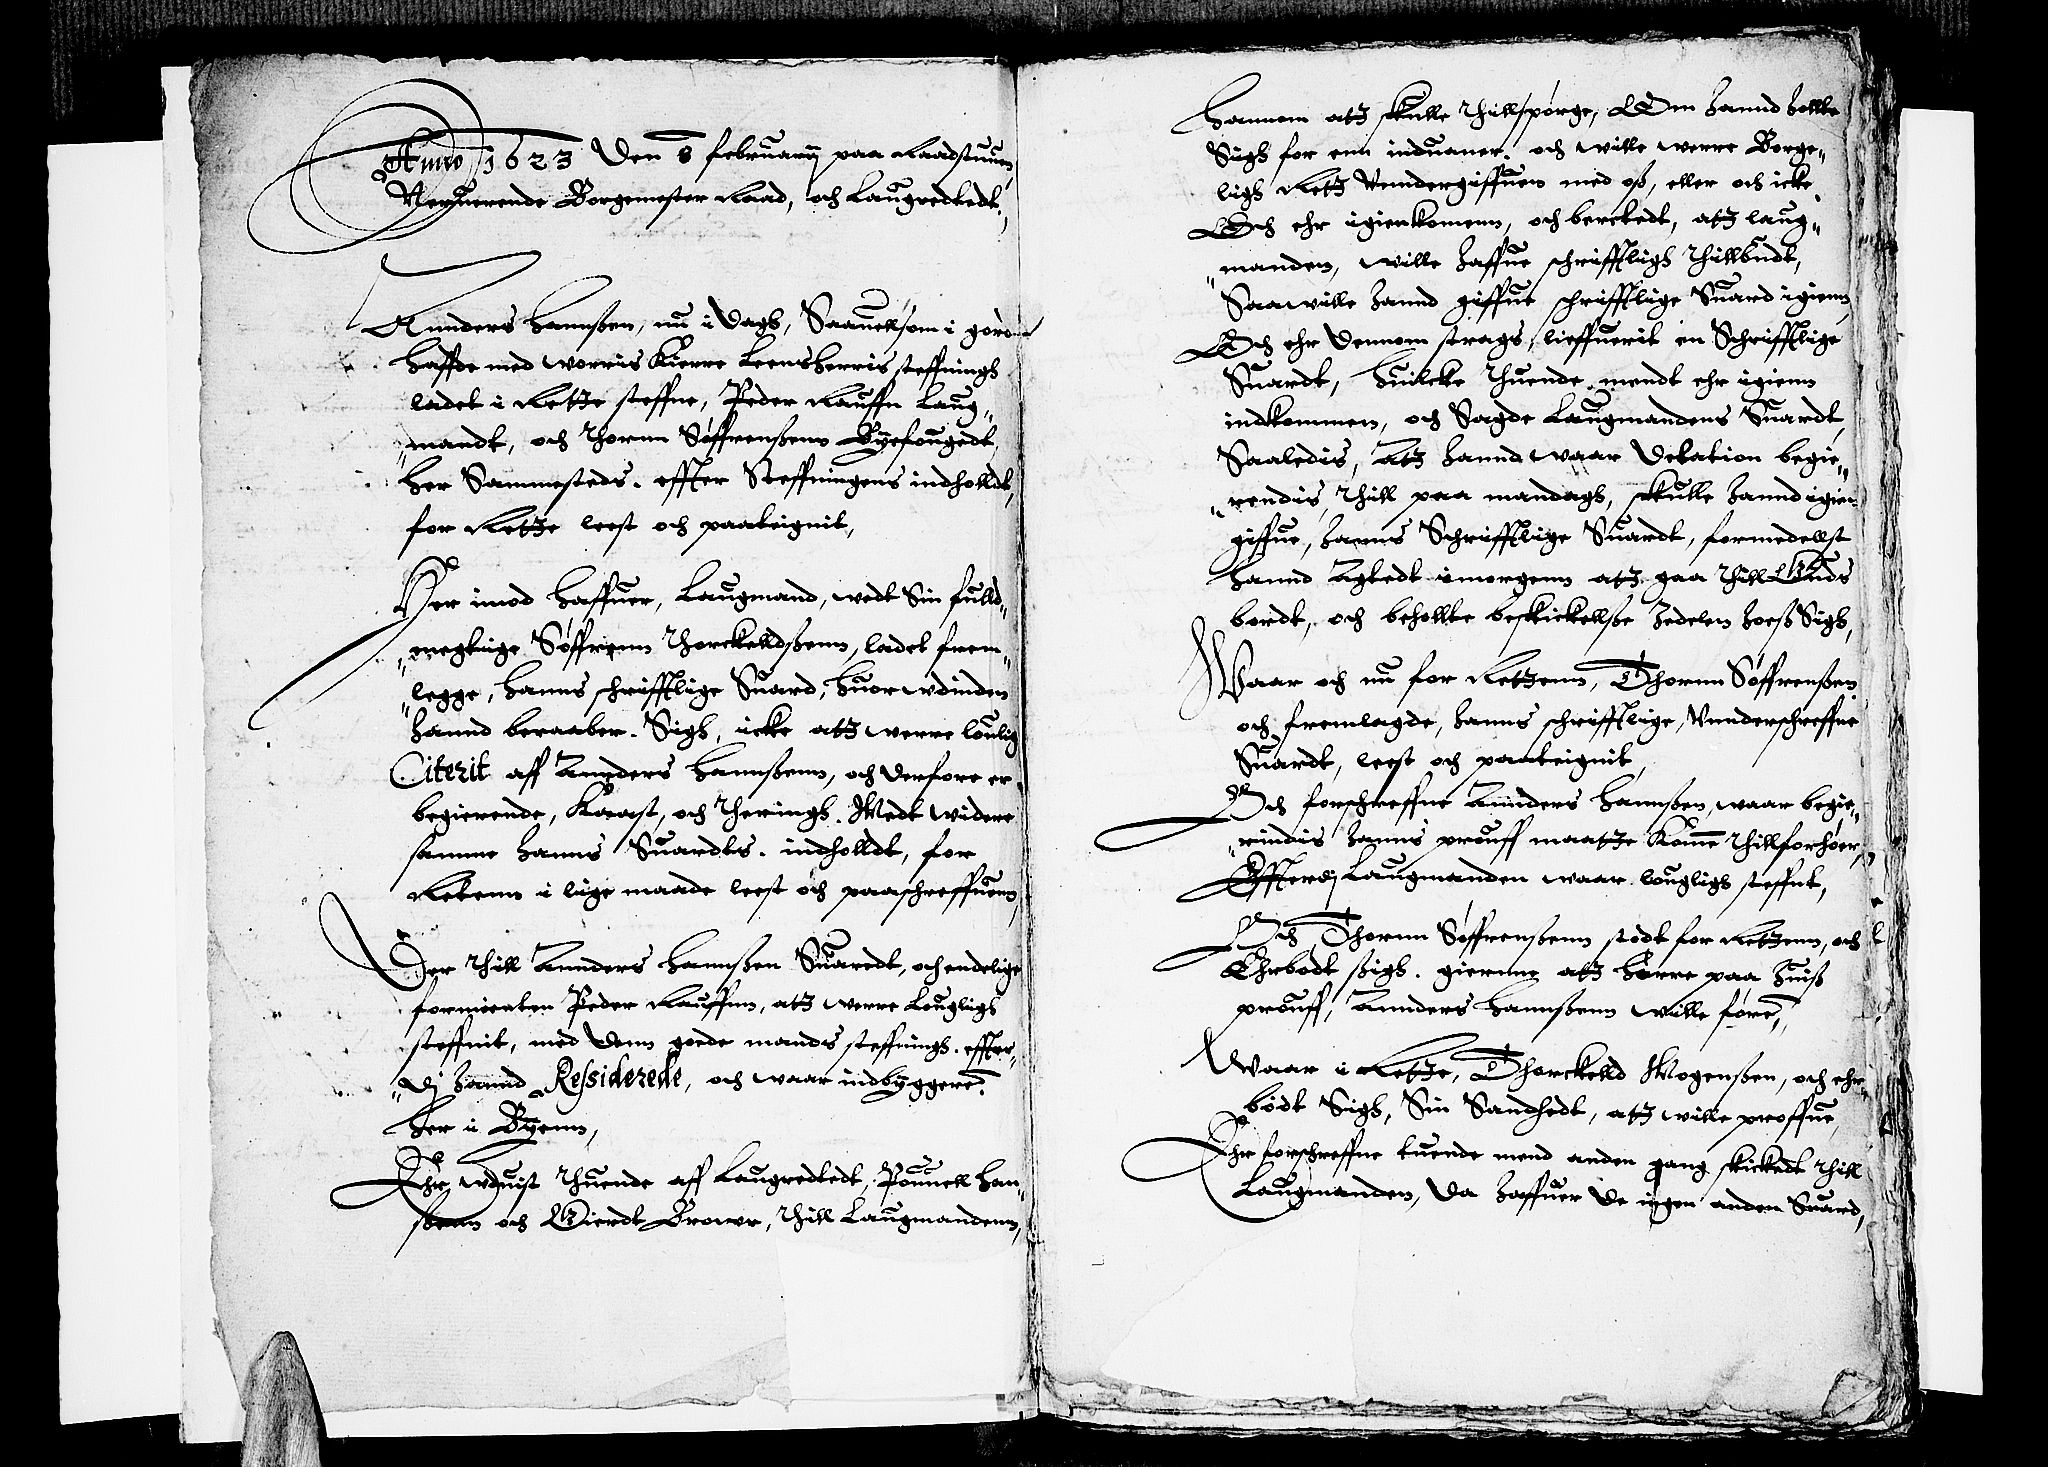 Anno 1623 Den 8 februarij paa Raadstuuen,
Neruerende Borgemester Raad, och Laugrettedt,
Annders Hannßen, nu i Dagh, Saauelsom i goro
haffde med worris Kierre Leensherris steffningh
ladet i Retze steffne, Peder Rauffn Laug„
„mandt, och Thornn Søffrenßenn Byefougedt,
her Sammesteds. effter Steffningens indholldt,
for Retze leest och paateignit,
Her imod haffuer, Laugmand, wedt Sin fulld„
„megtige Søffrenn Thorckelldßenn, ladet frem„
„legge, hanns schrifftlige Suard, huor wdinden
hannd beraaber. Sigh, icke att werre loulig
Citerit aff Annders Hannßenn, och derfore er
begierende, Kaast, och Theringh. Medt widere
samme hanns Suardts. indholldt, for
Retenn i lige maade leest och paaschreffuenn,
Der Thill Annders Hannßen Suaredt, och endelige
formienten Peder Rauffnn, att werre Lougligh
steffnit, med denn goede mands steffningh. effter„
„dj hannd Ressiderede, och waar indbyggere
her i Byenn,
Ehr wduist thuende aff Laugrettedt, Pouuell Han„
ßenn och Gierdt Brower, Thill Laugmandenn,
hannom att skulle Thillspørge, Om hannd hollte
Sigh for enn induaner. och wille werre Borge„
ligh Rett Unndergiffuen med oß, eller och icke
Och ehr igienkomenn, och berettedt, att laug„
„manden, wille haffue schrifftligh Thillbudt,
Saa wille hannd giffue schrifftlige Suard igienn,
Och ehr dennom strags, lieffuerit en Schrifftlige
Suardt, huilcke thuende mendt ehr igienn
indkommen, och Sagde Laugmandens Suardt,
Saaledis, Att hannd waar Delation begie„
„rendis, Thill paa mandagh, skulle hannd igien
giffue, hanns Schrifftlige Suardt, formedellst
hannd Agtedt imorgenn att gaa Thill Guds
bordt, och behollte beskickellße Zedelen hoeß Sigh,
Waar och nu for Retzenn, Thornn Søffrenßen
och fremlagde, hanns schrifftlige, Unnderschreffne
Suardt, leest och paateignit,
Och forschreffne Annders Hannßen, waar begie„
„rindis hanns prouff maatte Kome Thillforhøer,
Effterdj Laugmanden waar lougligh steffnt,
Och Thornn Søffrenßenn stodt for Retzenn, och
Ehrbødt ßigh. gierne att hørre paa huiß
prouff, Annders Hannßenn wille føre,
Waar i Retze, Thorckelld Mogenßen, och ehr„
bødt Sigh, Sin Sandhedt, att wille proffue,
Ehr forschreffne tuende mend anden gang skickedt Thill
Laugmanden, Da haffuer de ingen anden Suard,